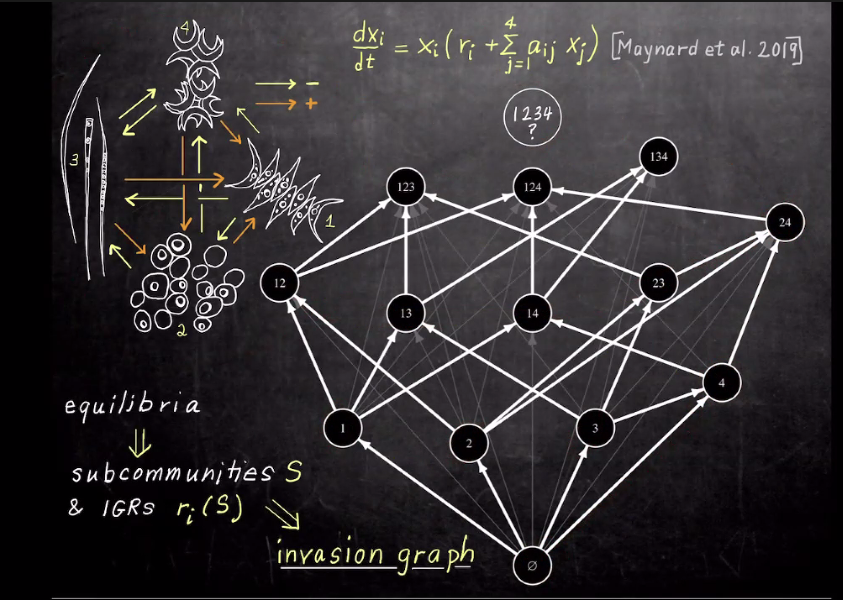 dxi/dt = xi ( ri + 4∑j=1 aij xj ) [Maynard et al. 2019]
4
→ -
→ +
3
1
2
1234
?
134
123
124
24
12
23
13
14
4
1
2
3
∅
equilibria
⇓
subcommunities S
& IGRs ri(S)
invasion graph